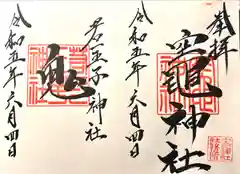 奉拝
竈神社
令和五年六月四日
若王子神社
令和五年六月四日